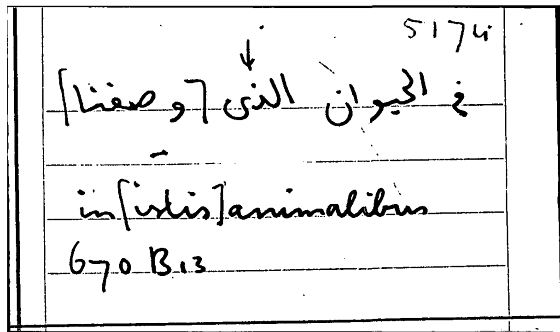 5174
في الحيوان الذى [وصفنا]
in [istis] animalibus
670 B 13